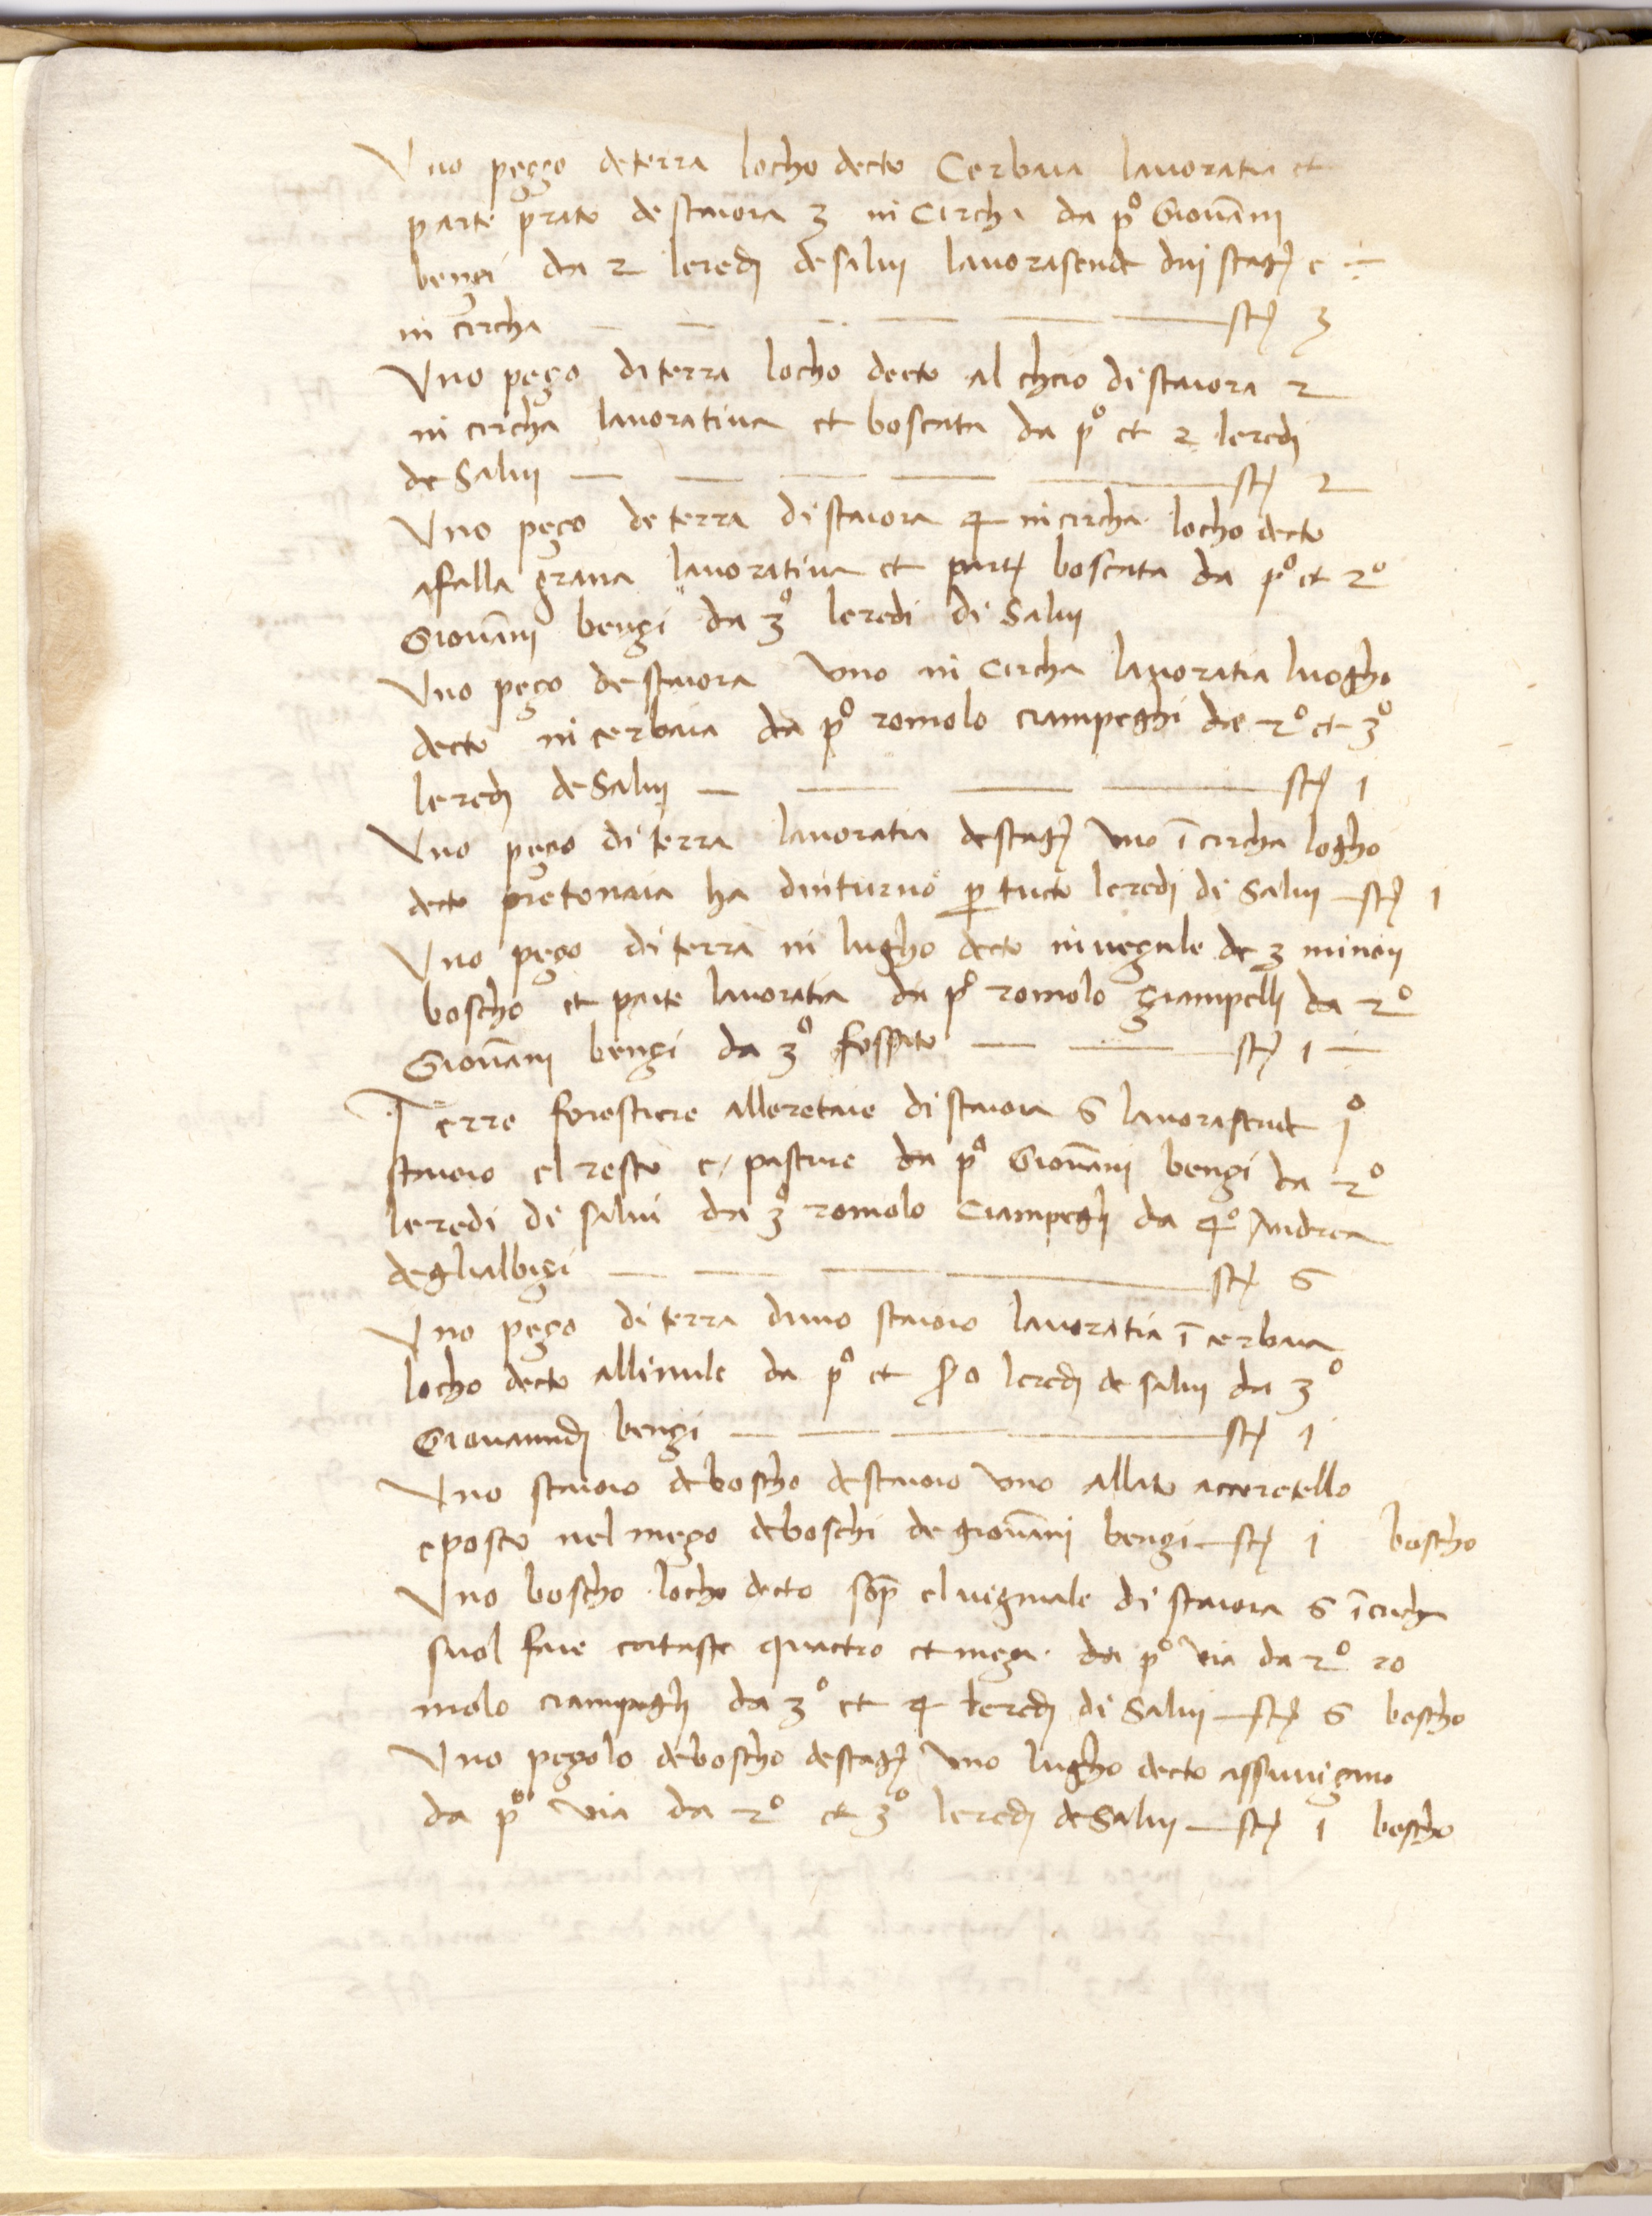 Uno peçço de terra locho decto Cerbaia lauoratia et
parte prato de staiora 3 in circha da pº Giouāni
bençi da 2 leredj de saluj lauorasene duj staorj e ÷
in circha — — — — — — stj 3
Uno peço di terra locho decto al di staiora 2
in circha lauoratiua et boscata da pº et 2 leredj
de Saluj — — — — — stj 2
Uno peço de terra di staiora 4 in circha locho decto
afalla grana lauoratiua et partj boscata da pº et 2º
Giouānj bençi da 3º leredi di Saluj
Uno peço de staiora Uno in circha lauoratia luogho
decto in cerbaia da pº romolo ciampeghi da 2º et 3º
leredj de Saluj — — — — stj 1
Uno peço di terra lauoratia de Uno ī circha logho
decto pretonaia ha dinturno p tucto leredi di Saluj — stj 1
Uno peço di terra in lugho decto in uegale de 3 minorj
boscho et parte lauoratia da pº romolo giampellj da 2º
Giouānj bençi da 3º fossato — — stj 1 ÷
Terre forestiere alleretaie di staiora 6 lauorasene jº
staioro el resto e / pasture da pº Giouānj bençi da 2º
leredi di salui da 3º romolo Ciampeghj da 4º Andrea
deglialbiçi — — — — stj 6
Uno peço di terra duno staioro lauoratia ī cerbaia
locho decto da pº et leredj de saluj da 3º
bençi — — — — stj 1
Uno staioro de boscho de staioro Uno allato acceretello
e posto nel meço de boschi de giouāni bençi — stj 1 boscho
Uno boscho locho decto sop el uignale di staiora 6 ī circha
suol fare cataste quactro et meça da pº uia da 2º ro
molo ciampeghj da 3º et 4 leredj di Saluj — stj 6 boscho
Uno peçolo de boscho de Uno lugho decto
da pº uia da 2º et 3º leredj de Saluj — stj 1 boscho